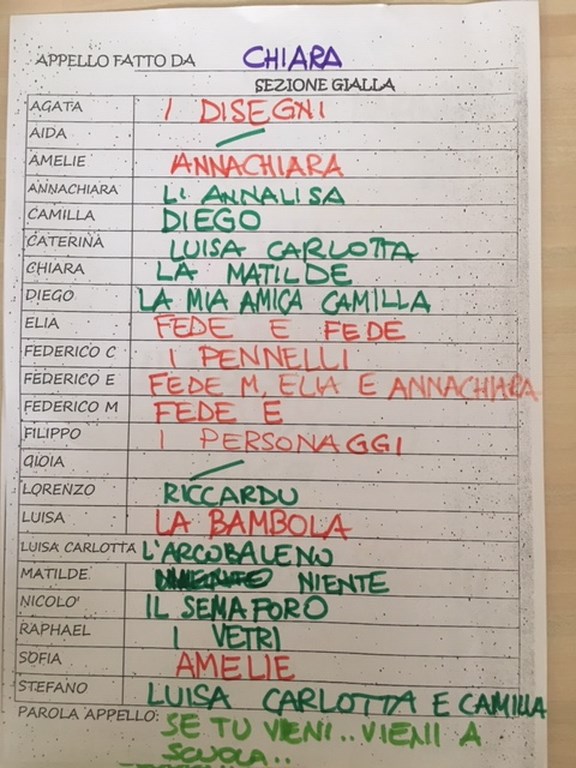 APPELLO FATTO DA CHIARA
SEZIONE GIALLA
AGATA I DISEGNI
AIDA
AMELIE ANNACHIARA
ANNACHIARA LI ANNALISA
CAMILLA DIEGO
CATERINA LUISA CARLOTTA
CHIARA LA MATILDE
DIEGO LA MIA AMICA CAMILLA
ELIA FEDE E FEDE
FEDERICO C I PENNELLI
FEDERICO E FEDE M, ELIA E ANNACHIARA
FEDERICO M FEDE E
FILIPPO I PERSONAGGI
GIOIA
LORENZO RICCARDU
LUISA LA BAMBOLA
LUISA CARLOTTA L'ARCOBALENO
MATILDE NIENTE
NICOLO' IL SEMAFORO
RAPHAEL I VETRI
SOFIA AMELIE
STEFANO LUISA CARLOTTA E CAMILLA
PAROLA APPELLO: SE TU VIENI.. VIENI A
SCUOLA..